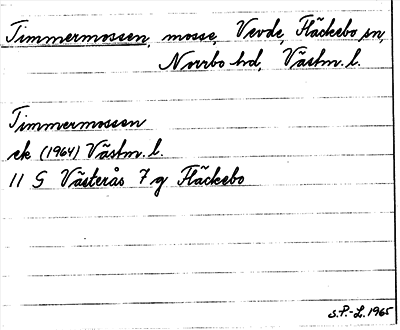 Timmermossen, mosse, Vevde, Fläckebo sn,
Norrbo hd, Västm. l.
Timmermossen
ek (1964) Västm. l.
11 G Västerås 7 g Fläckebo
S.P.-L. 1965